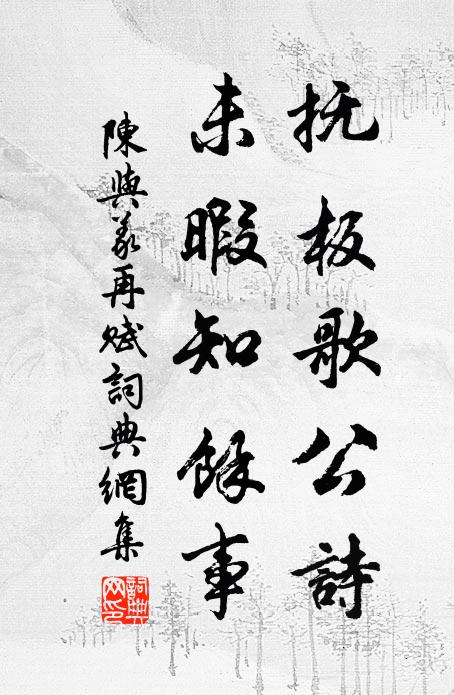 抚板歌公詩
未暇知餘事
陳與義再赋詞典網集
詞典網印